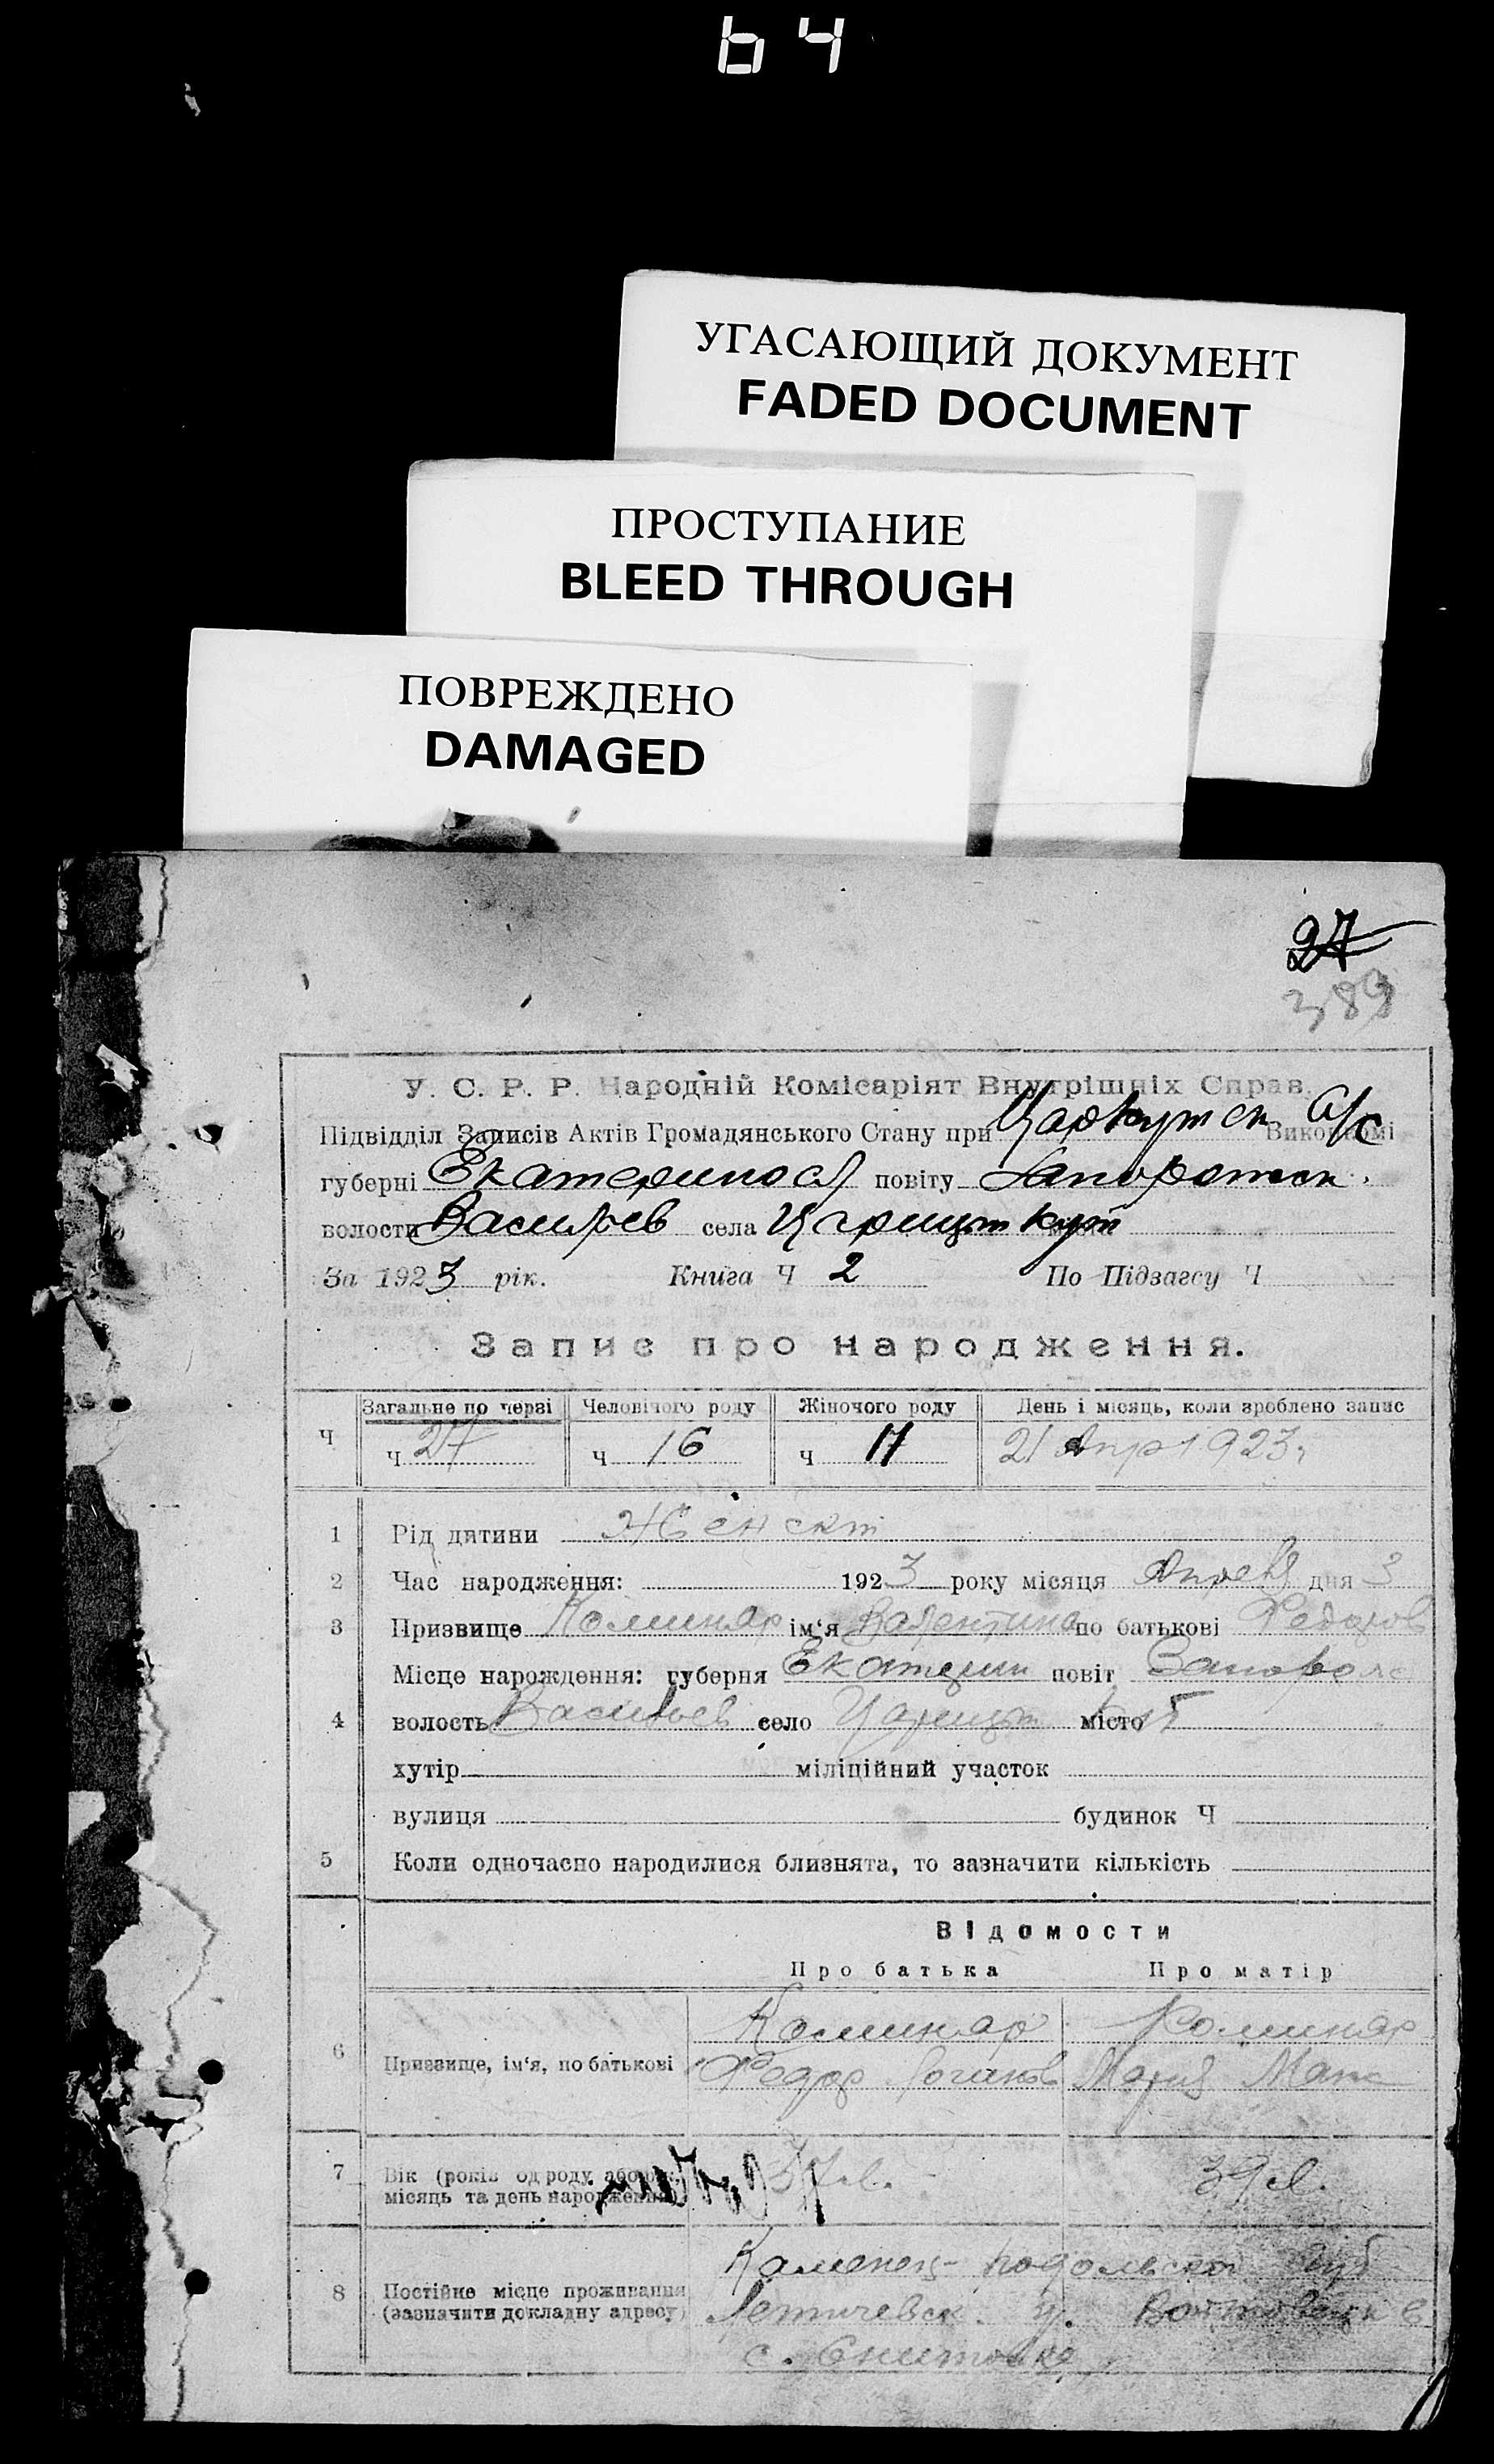 64
УГАСАЮЩИЙ ДОКУМЕНТ
FADED DOCUMENT
ПРОСТУПАНИЕ
BLEED THROUGH
ПОВРЕЖДЕНО
DAMAGED
27
389
У. С. Р. Р. Народній Комісаріят Внутрішніх Справ.
Підвідділ Записів Актів Громадянського Стану при Царкутск с/с
губерні Екатериносл повіту Запорожск.
волости Васильев села Царицын кут
За 1923 рік. Книга Ч 2 По Підзагсу Ч
Запис про народження.
Загальне по черзі Человічого роду Жіночого роду День і місяць, коли зроблено запис
Ч ч 27 ч 16 ч 11 21 Апр 1923 г
1 Рід дитини Женск
2 Час народження: 1923 року місяця Апреля дня 3
3 Призвище Коминар ім‘я Валентина по батькові Федоров
Місце нарождення: губерня Екатерин повіт Запорож
4 волость Васильев село Царицын місто Кут
хутір міліційний участок
вулиця будинок Ч
5 Коли одночасно народилися близнята, то зазначити кількість
Відомости
Про батька Про матір
Коминар Коминар
6 Призвище, ім‘я, по батькові Федор Мария
7 Вік (років од роду, або рік, 37 л. 39 л.
місяць та день народження)
Каменец-подольской губ
8 Постійне місце проживання
(зазначити докладну адресу) Летичевск. у.
с. Снитовка